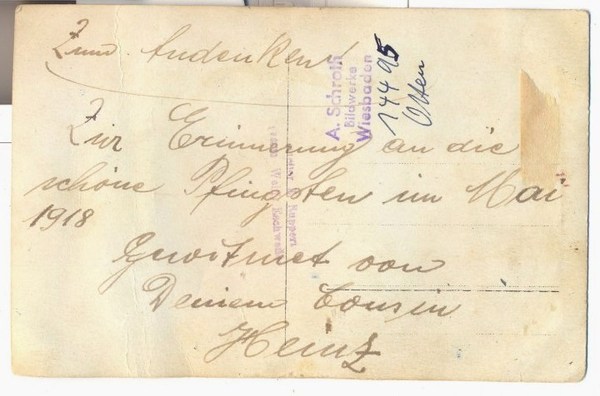 Zum Andenken!
Zur Erinnerung an die
schöne Pfingsten im Mai
1918
Gewitmet von
Deinem Cousin
Heinz
A. Schroth
Bildwerke
Wiesbaden
14495